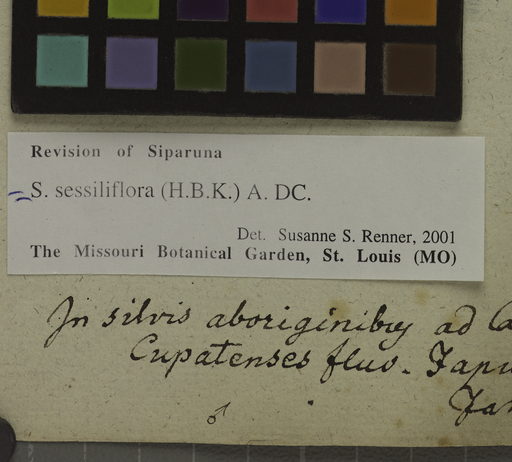 Revision of Siparuna
S. sessiliflora (H.B.K.) A. DC.
Det. Susanne S. Renner, 2001
The Missouri Botanical Garden, St. Louis (MO)
In silvis aboriginibus ad
Cupatenses fluv.
♂